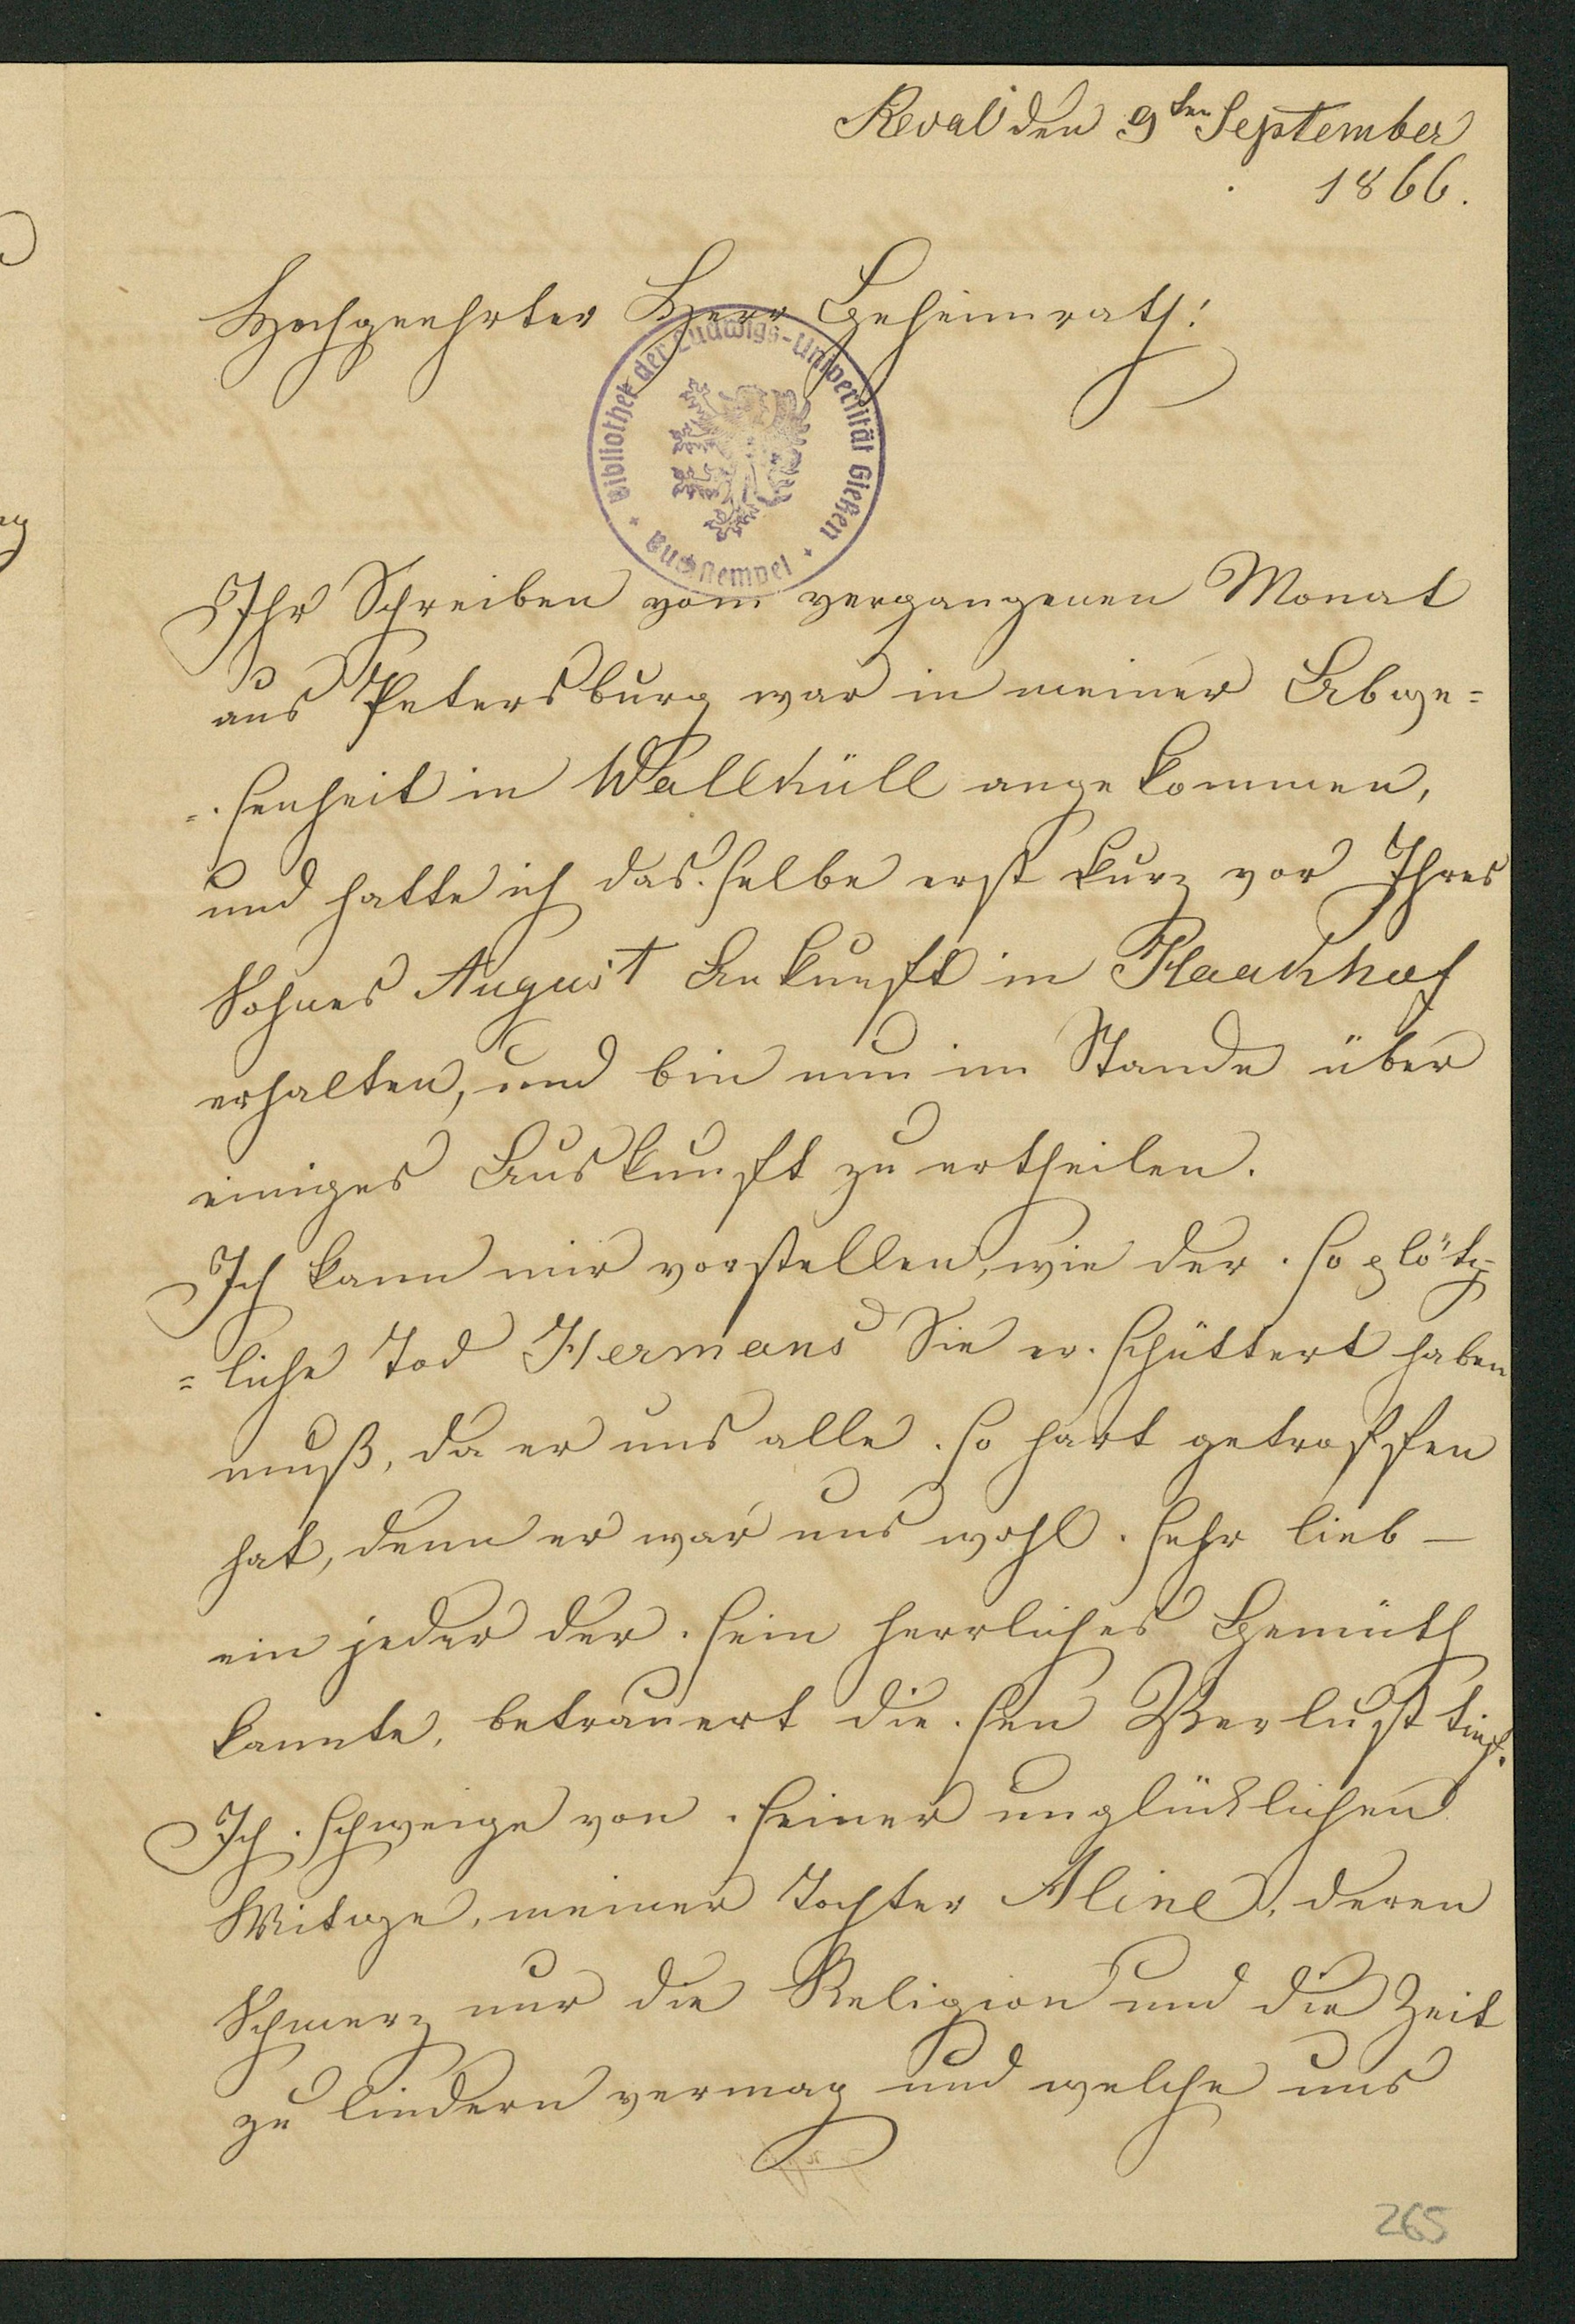 Reval den 9ten September
1866.
Hochgeehrter Herr Geheimrath!
Bibliothek der Ludwigs-Universität Gießen
Buchstempel
Ihr Schreiben vom vergangenen Monat
aus Petersburg war in meiner Abwe=
=senheit in Wallküll angekommen,
und hatte ich dasselbe erst kurz vor Ihres
Sohnes August Ankunft in Haakhof
erhalten, und bin nun im Stande über
einiges Auskunft zu ertheilen.
Ich kann mir vorstellen, wie der so plötz=
=liche Tod Hermans Sie erschüttert haben
muß, da er uns alle so hart getroffen
hat, denn er war uns wohl sehr lieb –
ein jeder der sein herrliches Gemüth
kannte, betrauert diesen Verlust tief.
Ich schweige von seiner unglücklichen
Witwe, meiner Tochter Aline, deren
Schmerz nur die Religion und die Zeit
zu lindern vermag und welche uns
265